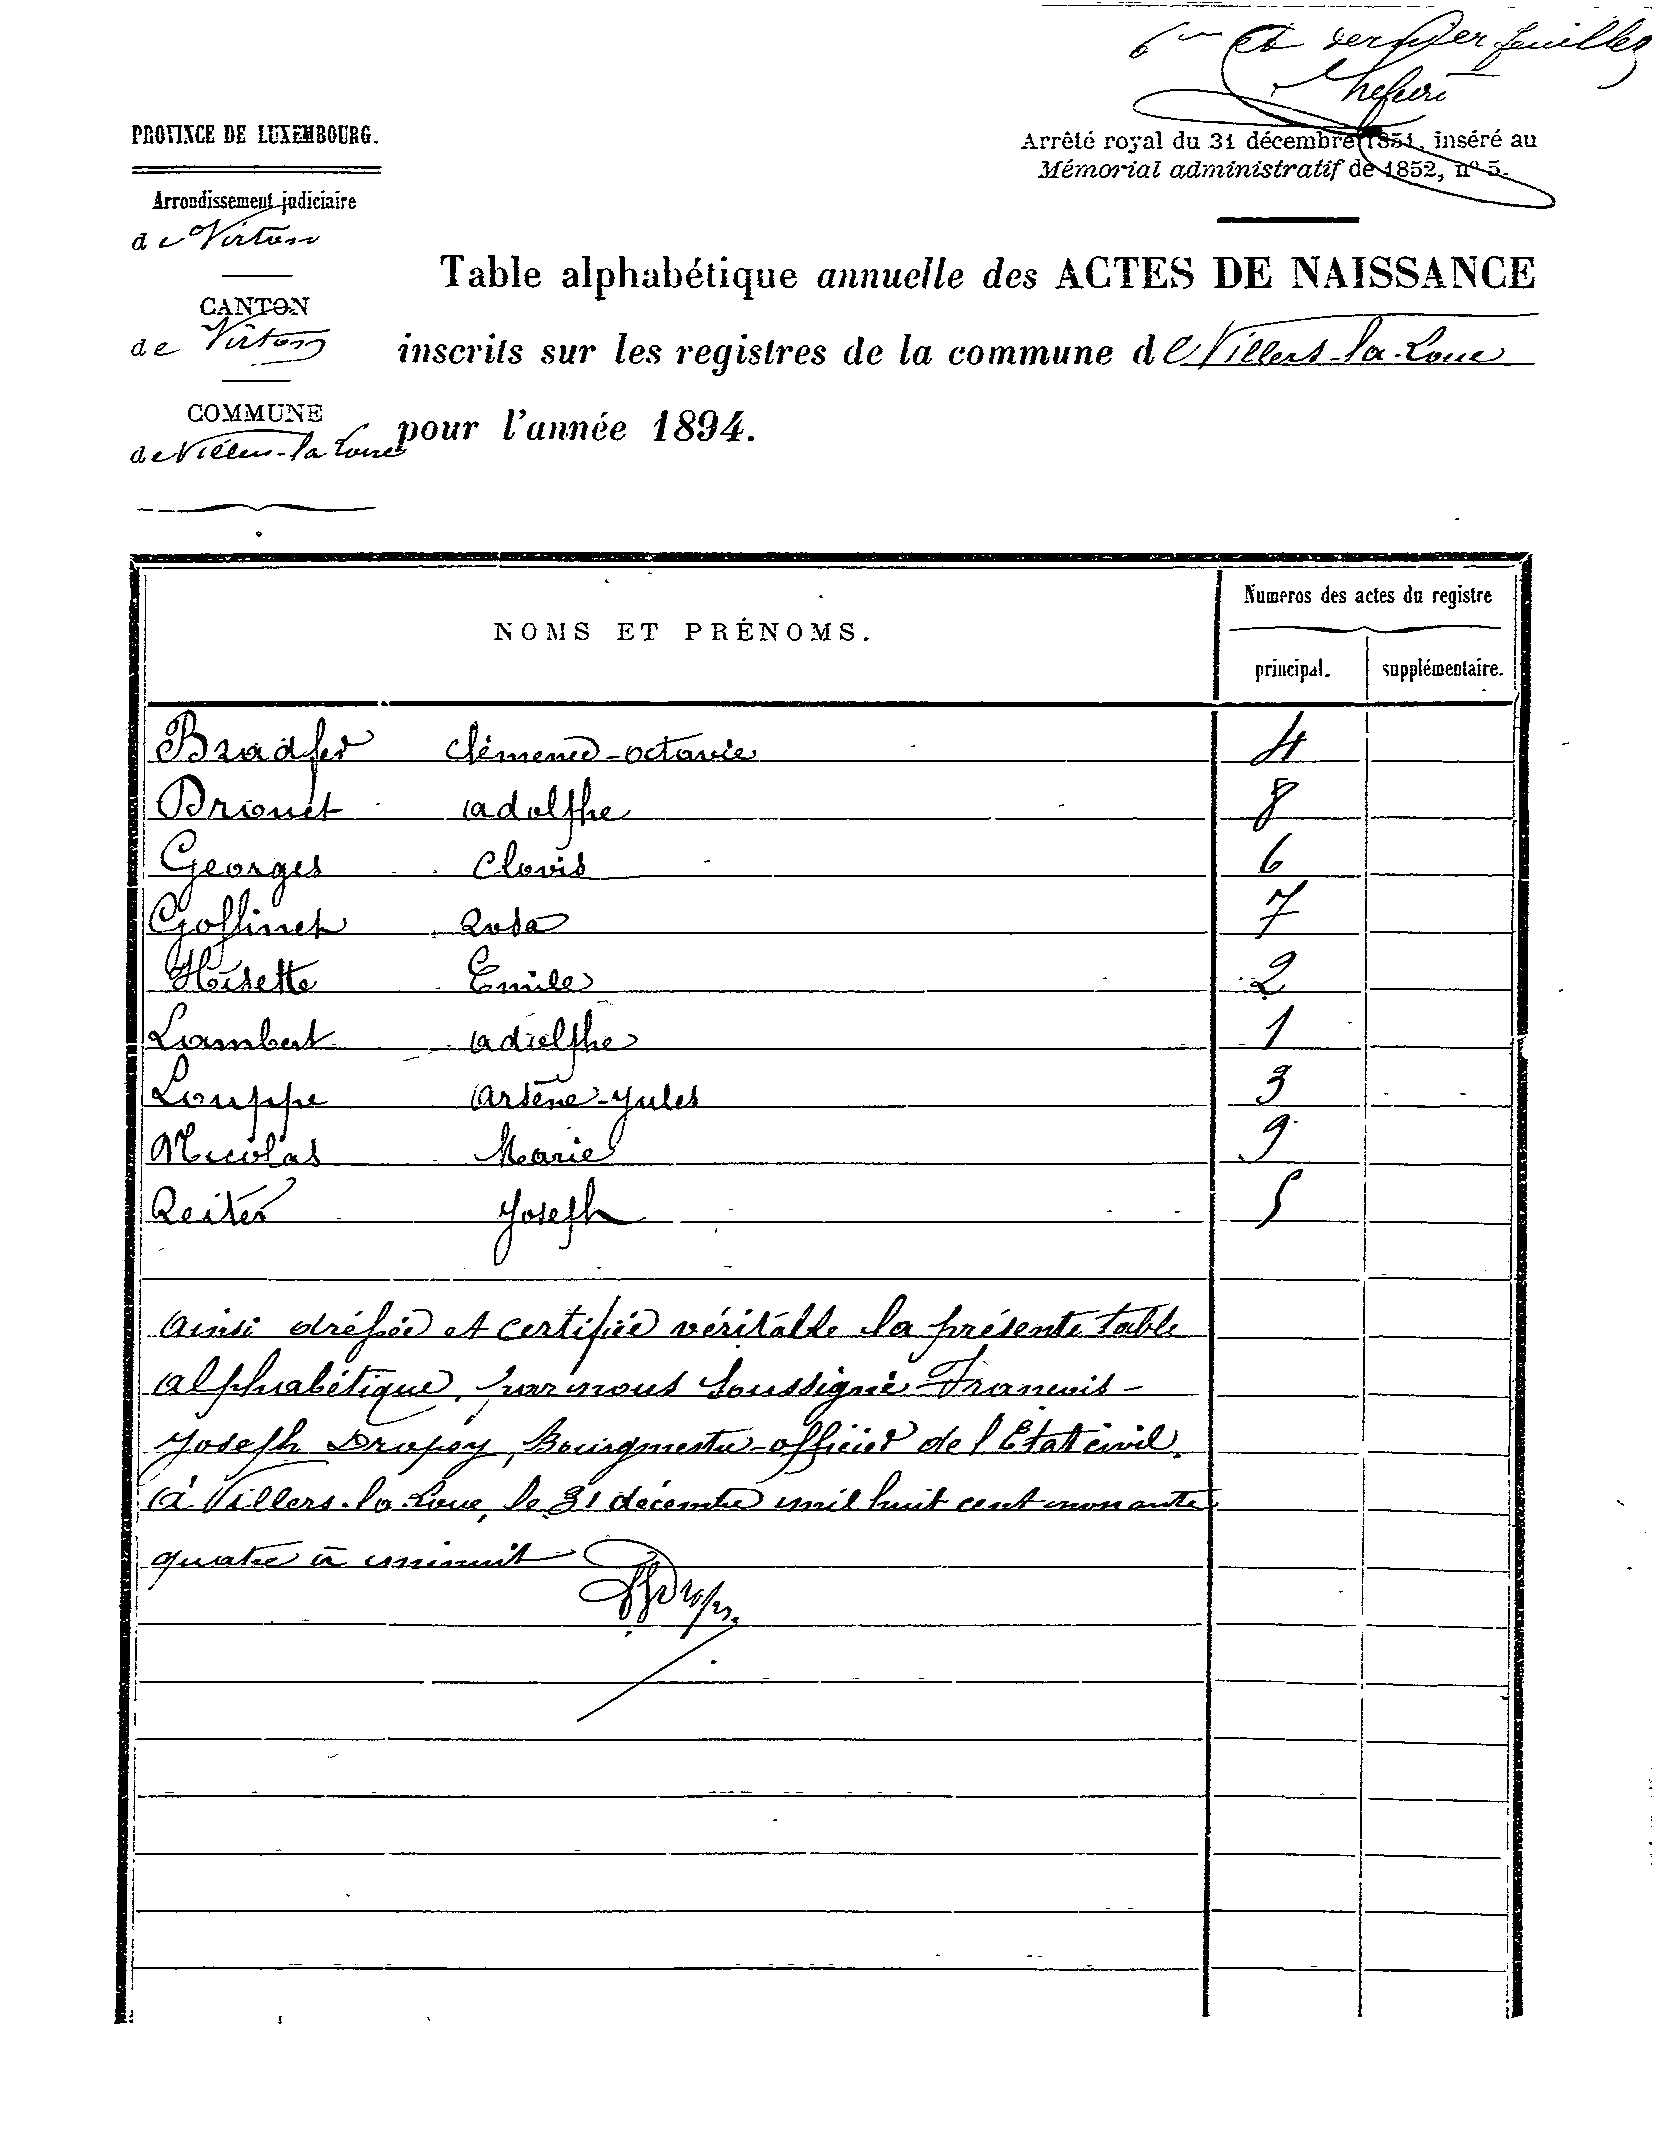 6me et dernier feuillet
PROVINCE DE LUXEMBOURG.
Arrêté royal du 31 décembre 1851, inséré au
Mémorial administratif de 1852, nº 5.
Arrondissement judiciaire
de Virton
CANTON
de Virton
COMMUNE
de Villers-la-Loue
Table alphabétique annuelle des ACTES DE NAISSANCE
inscrits sur les registres de la commune de Villers-la-Loue
pour l'année 1894.
NOMS ET PRÉNOMS.
Numeros des actes du registre
principal. supplémentaire.
Bradfer Clémence-Octavie 4
Drouet Adolphe 8
Georges Clovis 6
Goffinet Rosa 7
Hisette Emile 2
Lambert Adolphe 1
Louppe Arsène-Jules 3
Nicolas Marie 9
Reiter Joseph 5
Ainsi dressée et certifiée véritable la présente table
alphabétique, par nous soussigné François-
Joseph Dropsy, Bourgmestre-officier de l'Etat civil
à Villers-la-Loue, le 31 décembre mil huit cent nonante
quatre à minuit